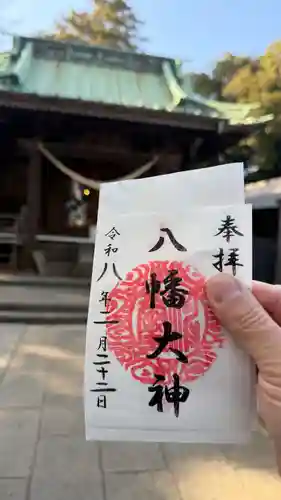 奉拝
八幡大神
令和八年二月二十二日